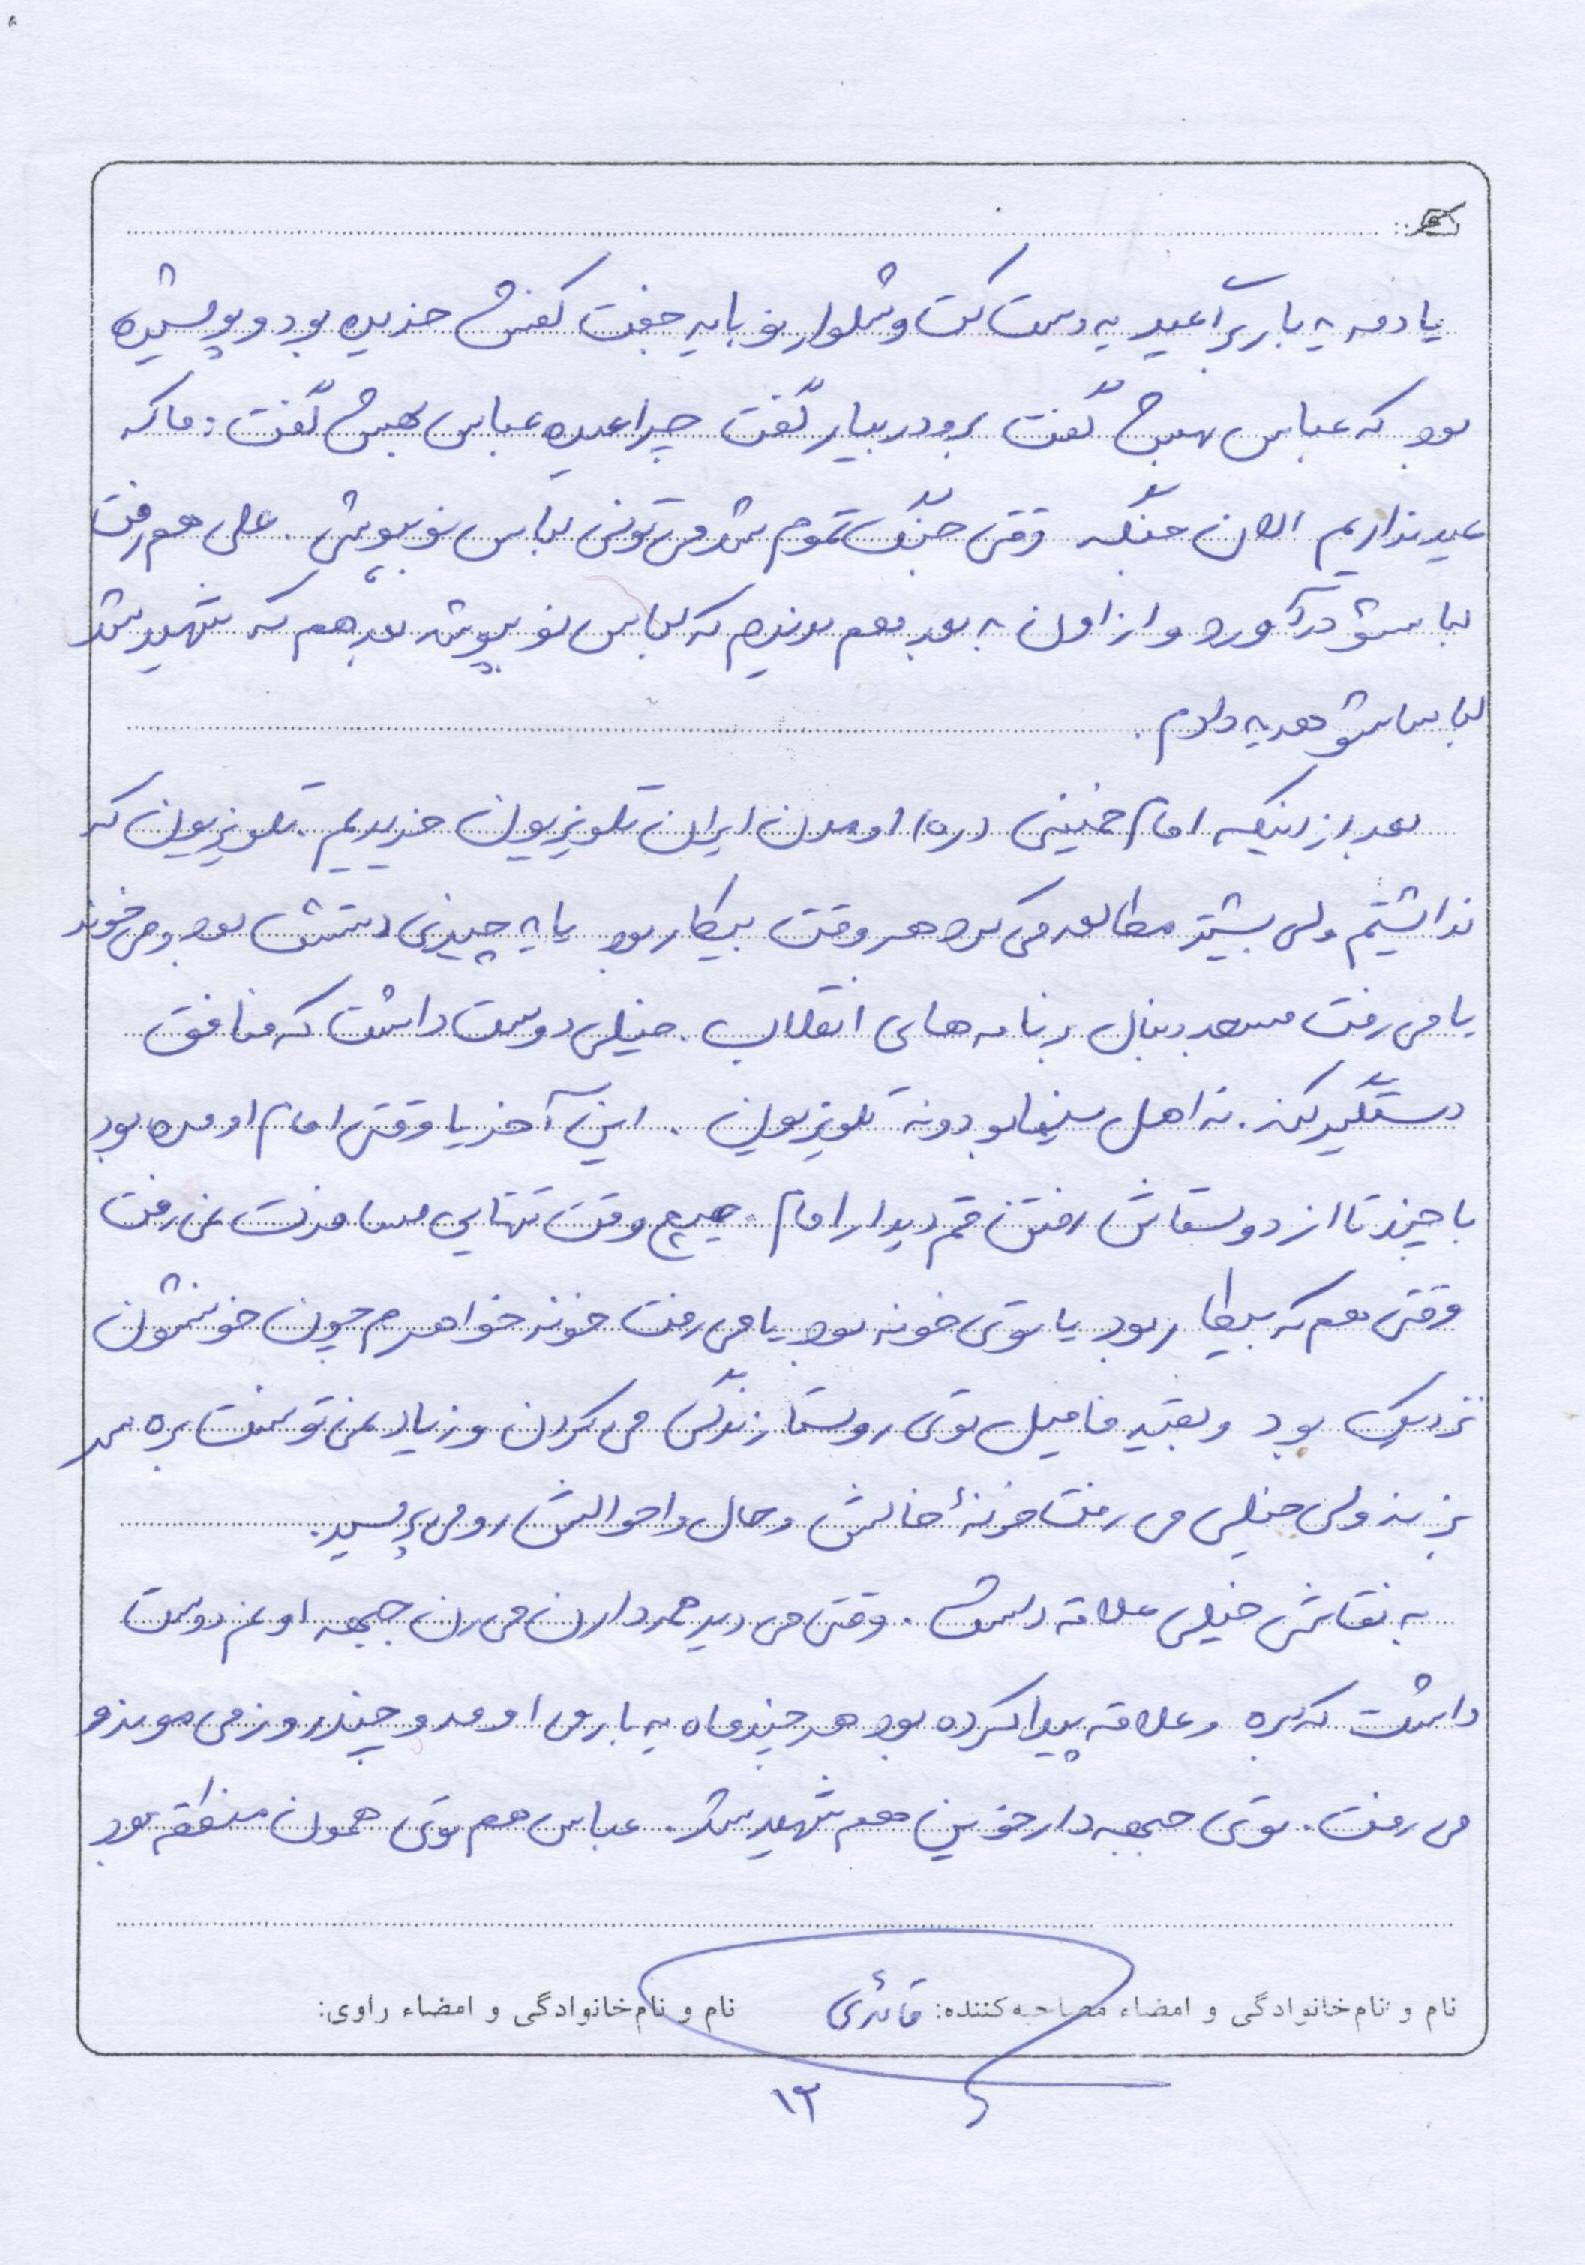 یادمه یه بار برا عید یه دست کت و شلوار نو با یه جفت کفش خریده بود و پوشیده
بود که عباس بهش گفت برو در بیار گفت چرا عیده عباس بهش گفت: ما که
عید نداریم الان جنگه وقتی جنگ تموم شد می تونی لباس نو بپوشی. علی هم رفت
لباسشو درآورد و از اون به بعد هم ندیدم که لباس نو بپوشه بعد هم که شهید شد
لباساشو هدیه دادم.
بعد از اینکه امام خمینی (ره) اومدن ایران تلویزیون خریدیم. تلویزیون که
نداشتیم ولی بیشتر مطالعه می کرد هر وقت بیکار بود یا یه چیزی دستش بود و می خوند
یا می رفت مسجد دنبال برنامه های انقلاب. خیلی دوست داشت که منافق
دستگیر کنه. نه اهل سینما بود و نه تلویزیون. این آخریا وقتی امام اومده بود
با چند تا از دوستاش رفتن قم دیدار امام. هیچ وقت تنهایی مسافرت نمی رفت
وقتی هم که بیکار بود یا توی خونه بود یا می رفت خونه خواهرم چون خونشون
نزدیک بود و بقیه فامیل توی روستا زندگی می کردن و زیاد نمی تونست بره سر
بزنه ولی خیلی می رفت خونهٔ خالش و حال و احوالش رو می پرسید.
به نقاشی خیلی علاقه داشت. وقتی می دید همه دارن می رن جبهه اونم دوست
داشت که بره و علاقه پیدا کرده بود هر چند ماه یه بار می اومد و چند روز می موند و
می رفت. توی جبهه دارخوین هم شهید شد. عباس هم توی همون منطقه بود
نام و نام‌خانوادگی و امضاء مصاحبه‌کننده: قائدی نام و نام‌خانوادگی و امضاء راوی:
۱۲